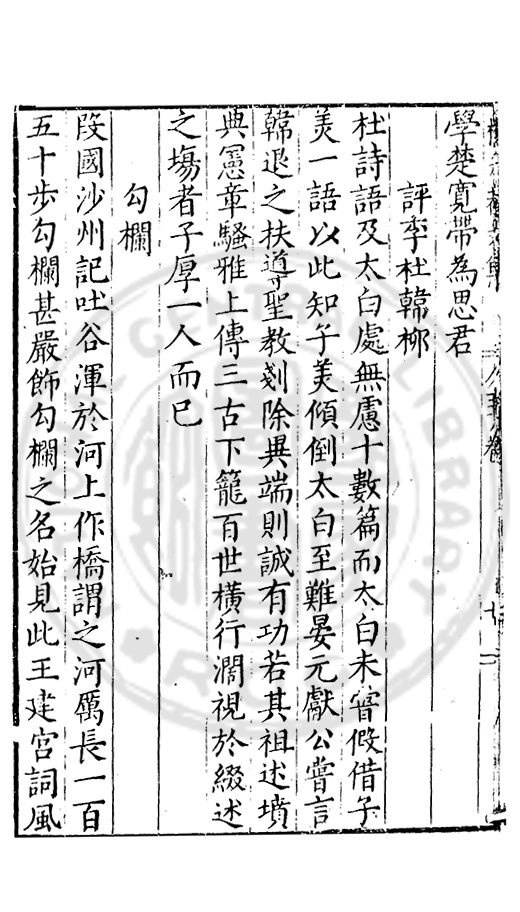 學楚寬帶為思君
評李杜韓柳
杜詩語及太白處無慮十數篇而太白未甞假借子
美一語以此知子美傾倒太白至難晏元獻公甞言
韓退之扶導聖教剗除異端則誠有功若其祖述墳
典憲章騷雅上傳三古下籠百世橫行濶視於綴述
之塲者子厚一人而已
勾欄
段國沙州記吐谷渾於河上作橋謂之河厲長一百
五十步勾欄甚嚴飾勾欄之名始見此王建宮詞風